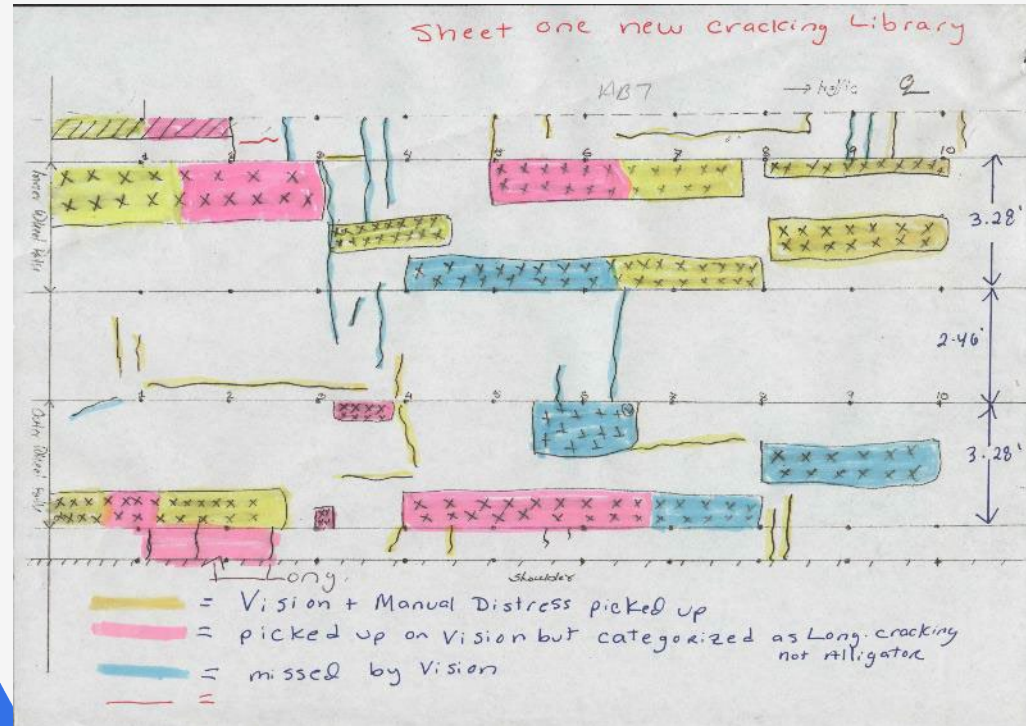 Sheet one new cracking Library
→ traffic
Inner Wheel Path
3.28'
2.46'
Outer Wheel Path
3.28'
Long.
Shoulder
= Vision + Manual Distress picked up
= picked up on Vision but categorized as Long. cracking
not Alligator
= missed by Vision
=